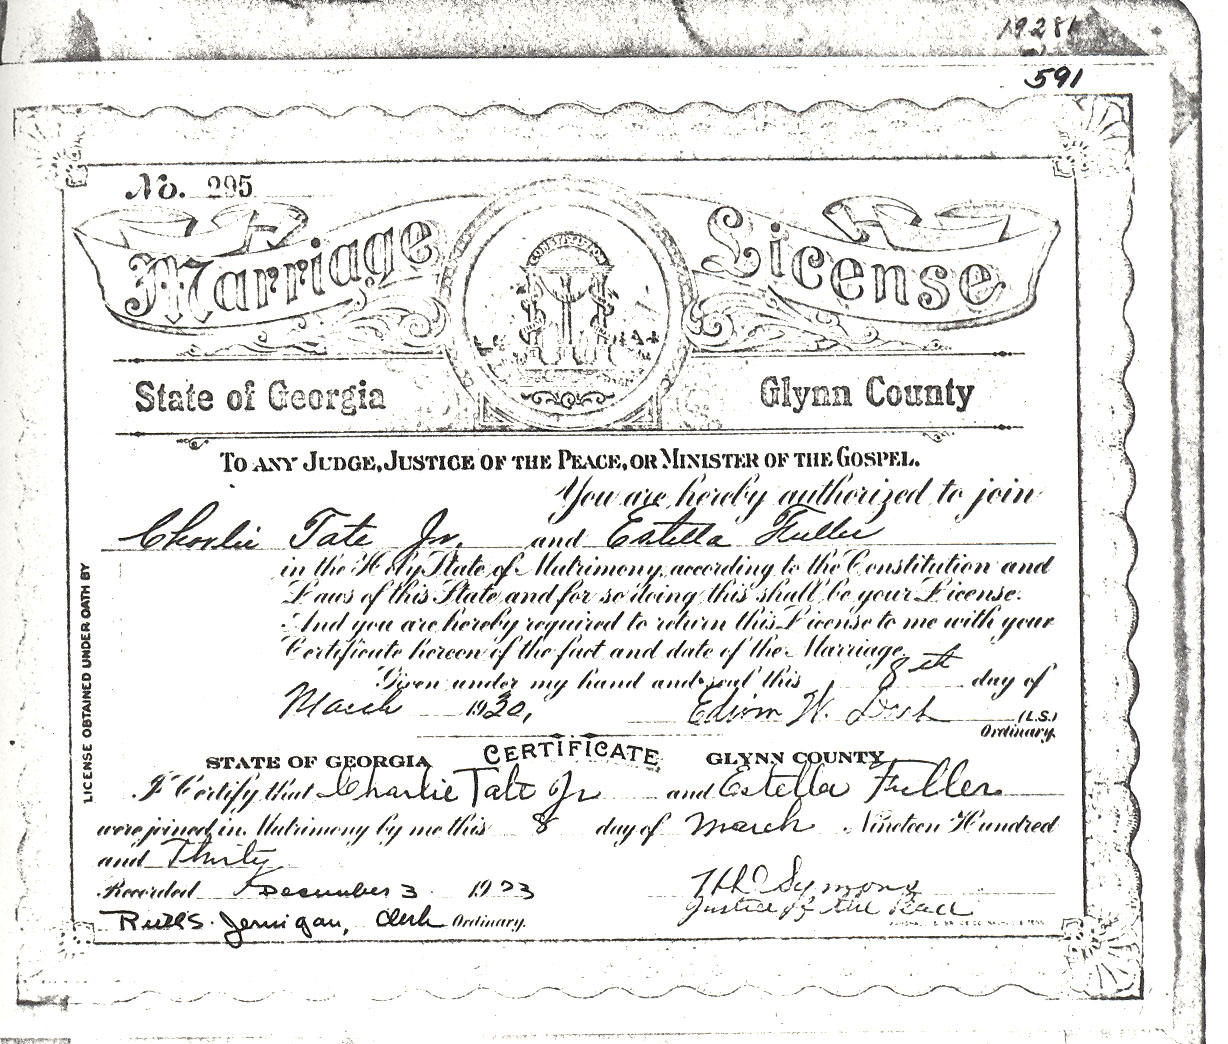 19281
591
No. 295
Marriage License
CONSTITUTION
State of Georgia Glynn County
TO ANY JUDGE, JUSTICE OF THE PEACE, OR MINISTER OF THE GOSPEL.
You are hereby authorized to join
Charlie Tate Jr. and Estella Fuller
in the Holy State of Matrimony, according to the Constitution and
Laws of this State and for so doing this shall be your License.
And you are hereby required to return this License to me with your
Certificate hereon of the fact and date of the Marriage.
Given under my hand and seal this 8th day of
March 1930, Edwin W. (L.S.)
Ordinary.
LICENSE OBTAINED UNDER OATH BY
CERTIFICATE
STATE OF GEORGIA GLYNN COUNTY
I Certify that Charlie Tate Jr and Estella Fuller
were joined in Matrimony by me this 8 day of March Nineteen Hundred
and Thirty
Recorded December 3 1933 Symons
Justice of the Peace
Ruth S. Jernigan, Clerk Ordinary.